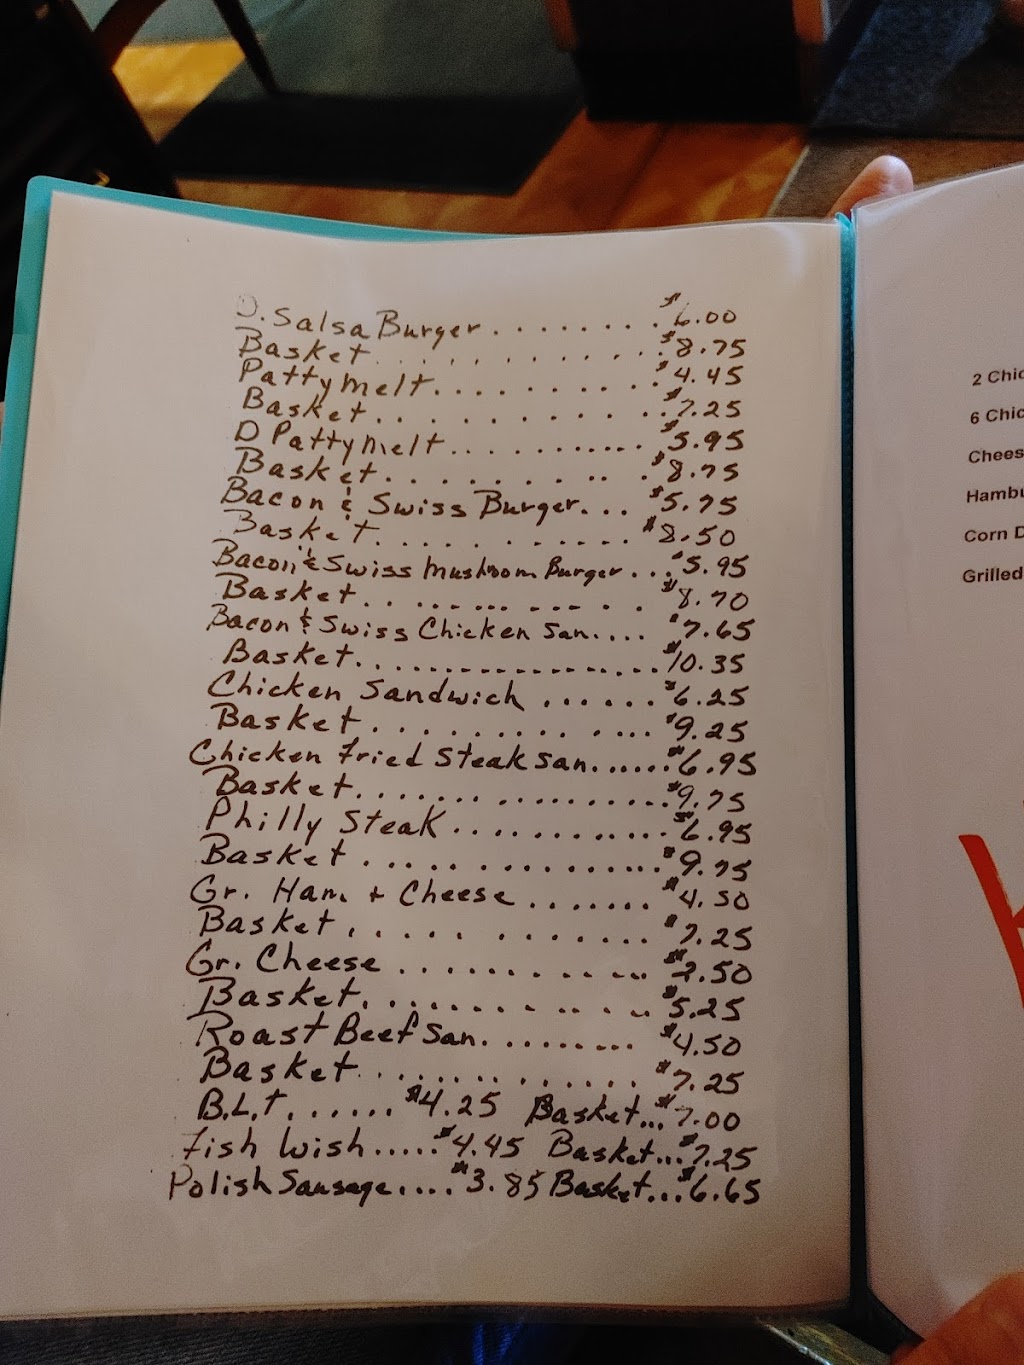 D. Salsa Burger ........ $6.00
Basket ............. $8.75
Patty melt .......... $4.45
Basket .......... $7.25
D Patty melt ........... $5.95
Basket .......... $8.75
Bacon & Swiss Burger... $5.75
Basket ............ $8.50
Bacon & Swiss Mushroom Burger ... $5.95
Basket ............ $8.70
Bacon & Swiss Chicken San.... $7.65
Basket ................. $10.35
Chicken Sandwich ...... $6.25
Basket .............. $9.25
Chicken Fried Steak San....... $6.95
Basket ................. $9.75
Philly Steak ............ $6.95
Basket ............... $9.75
Gr. Ham + Cheese ....... $4.50
Basket ............ $7.25
Gr. Cheese ........... $2.50
Basket ............ $5.25
Roast Beef San. ........ $4.50
Basket ............. $7.25
B.L.T....... $4.25 Basket... $7.00
Fish Wish ..... $4.45 Basket... $7.25
Polish Sausage.... $3.85 Basket... $6.65
2 Chic
6 Chic
Chees
Hambu
Corn D
Grilled